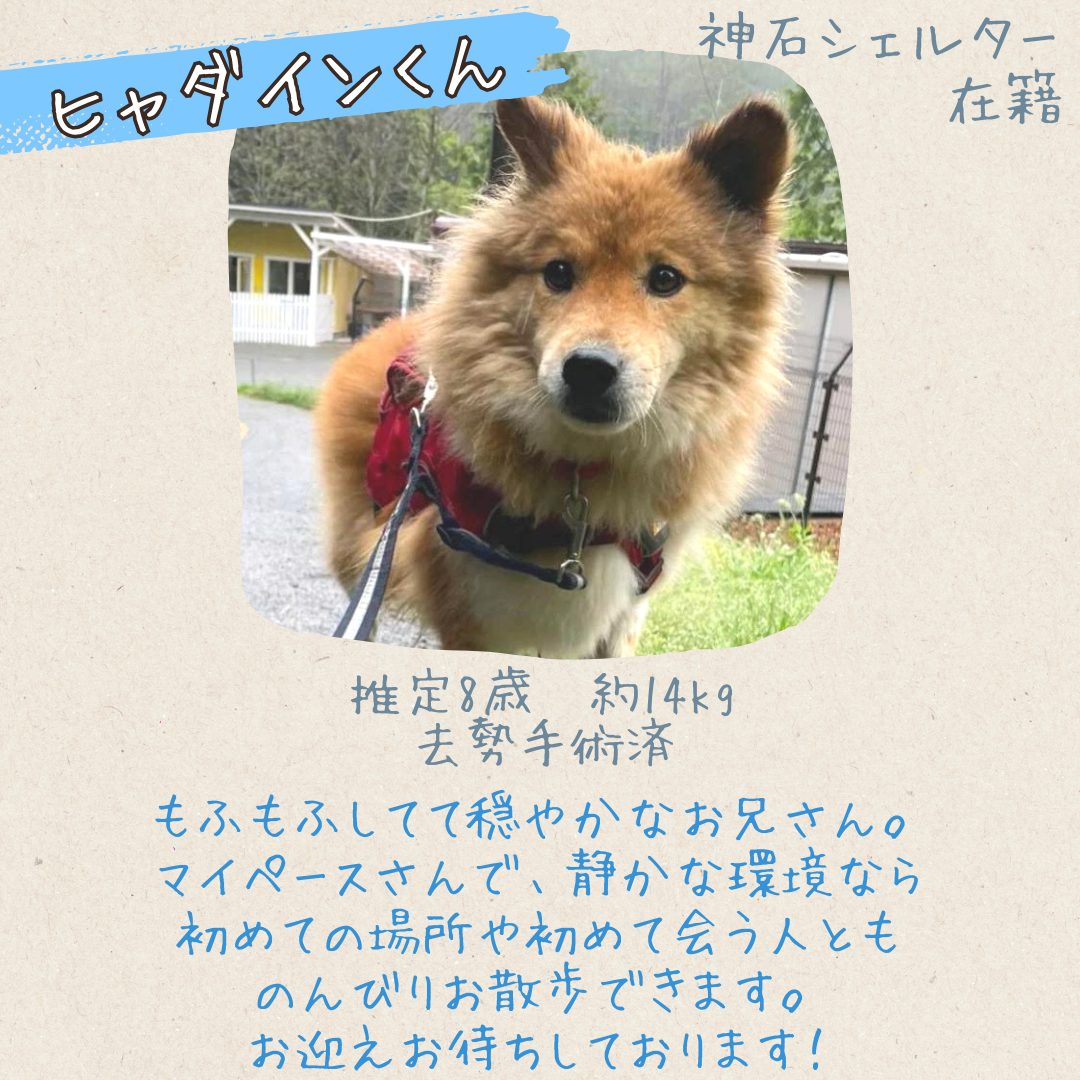 ヒャダインくん
神石シェルター
在籍
推定8歳　約14kg
去勢手術済
もふもふしてて穏やかなお兄さん。
マイペースさんで、静かな環境なら
初めての場所や初めて会う人とも
のんびりお散歩できます。
お迎えお待ちしております!